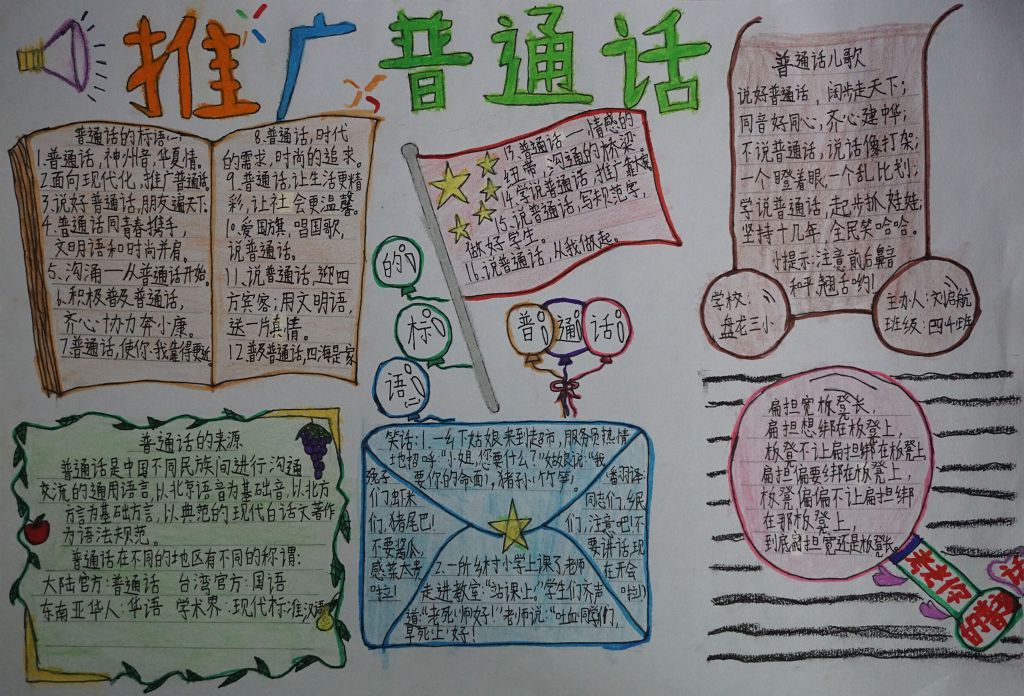 推广普通话
普通话的标语(一)
1.普通话,神州音,华夏情。
2.面向现代化,推广普通话。
3.说好普通话,朋友遍天下。
4.普通话同青春携手,
文明语和时尚并肩。
5.沟通——从普通话开始。
6.积极普及普通话,
齐心协力奔小康。
7.普通话,使你我靠得更近
8.普通话,时代
的需求,时尚的追求。
9.普通话,让生活更精
彩,让社会更温馨。
10.爱国旗,唱国歌,
说普通话。
11.说普通话,迎四
方宾客;用文明语,
送一片真情。
12.普及普通话,四海是一家
13.普通话——情感的
纽带,沟通的桥梁。
14.学说普通话,推广
15.说普通话,写规范字,
做好学生。
16.说普通话,从我做起。
普通话
的标语(二)
普通话儿歌
说好普通话,阔步走天下;
同音好同心,齐心建中华;
不说普通话,说话像打架;
一个瞪着眼,一个乱比划;
学说普通话,起步抓娃娃,
坚持十几年,全民笑哈哈。
小提示:注意前后鼻音
和平、翘舌哟!
学校:
盘龙三小
主办人:刘启航
班级:四4班
普通话的来源
普通话是中国不同民族间进行沟通
交流的通用语言,以北京语音为基础音,以北方
方言为基础方言,以典范的现代白话文著作
为语法规范。
普通话在不同的地区有不同的称谓:
大陆官方:普通话 台湾官方:国语
东南亚华人:华语 学术界:现代标准汉语
笑话:1.一乡下姑娘来到超市,服务员热情
地招呼:“小姐,您要什么?”姑娘说:“我
要你的命面,猪孙小竹学。”
2.一所乡村小学上课了,老师
走进教室:“站课上!”学生们齐声
道:“老死!师好!”老师说:“吐血同学们,
早死上!好!
孩子
们,虾米
们,猪尾巴!
不要酱瓜,
感菜太贵
啦!
翻译
同志们,乡民
们,注意吧!不
要讲话,现
在开会
啦!
扁担宽板凳长,
扁担想绑在板登上,
板登不让扁担绑在板凳上
扁担偏要绑在板凳上,
板凳偏偏不让扁担绑
在那板登上,
到底扁担宽还是板凳长。
考考你
的普
话